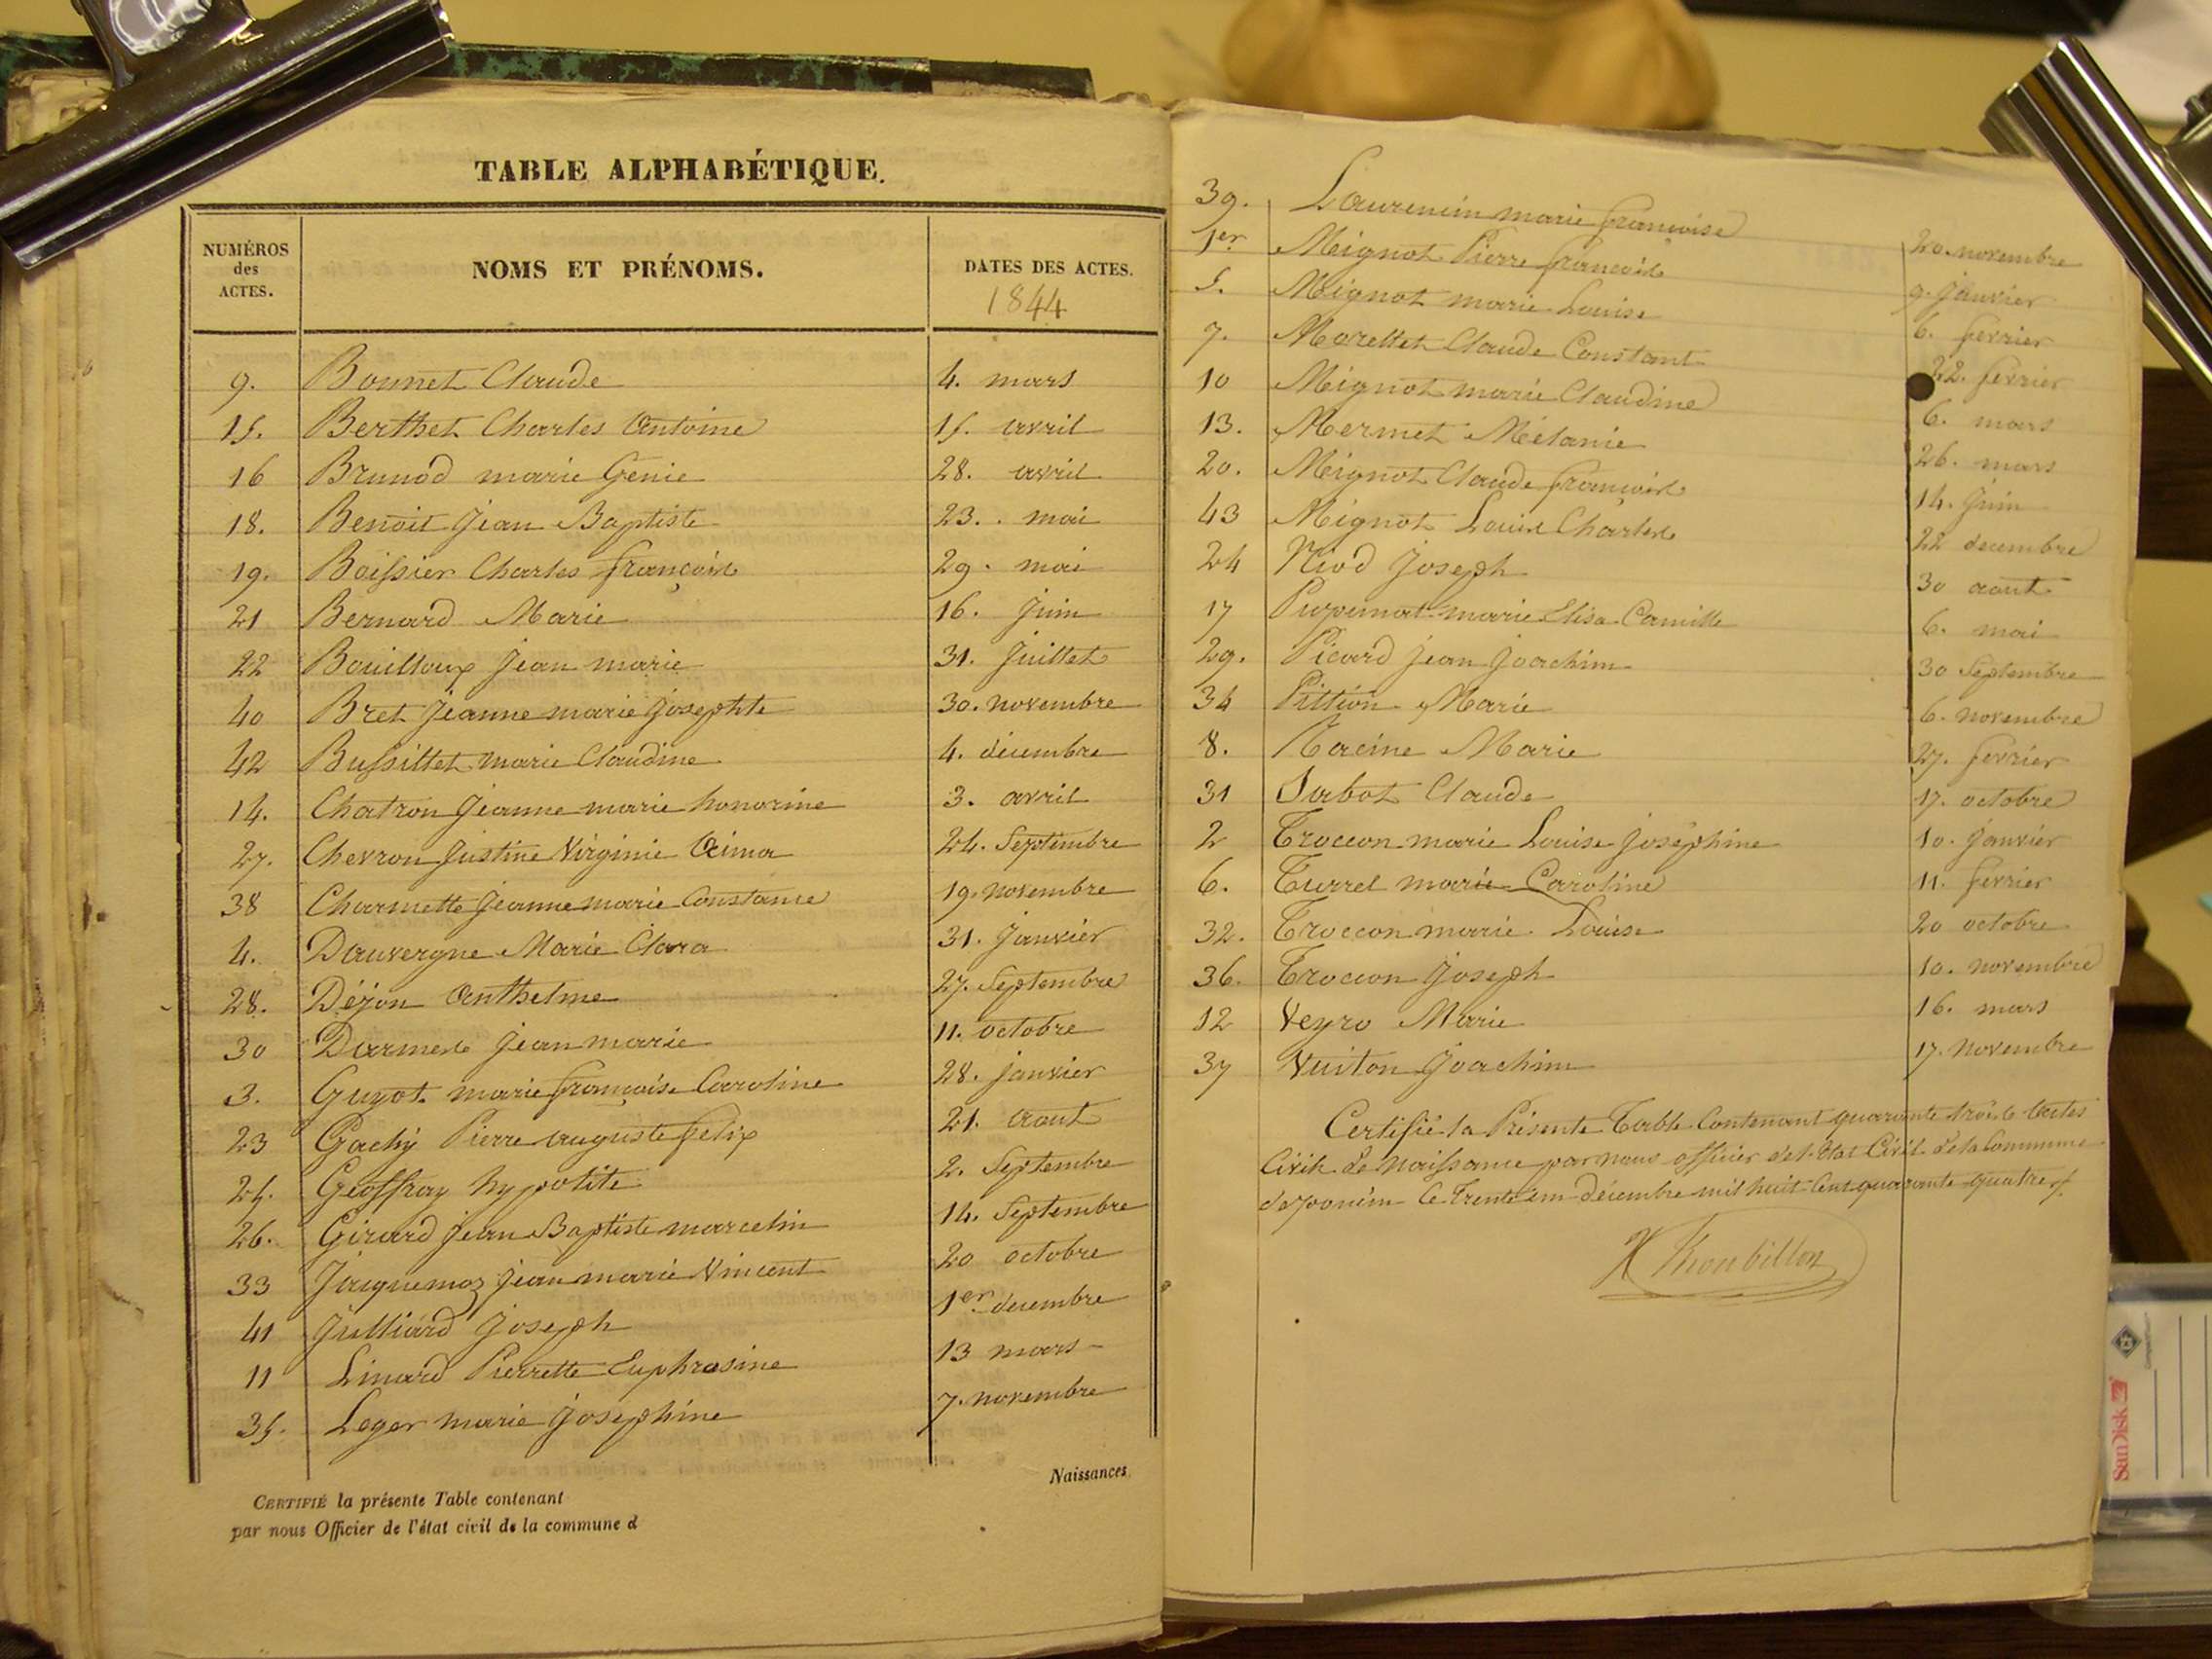 TABLE ALPHABÉTIQUE.
NUMÉROS des ACTES. NOMS ET PRÉNOMS. DATES DES ACTES.
1844
9. Bonnet Claude 4. mars
15. Berthet Charles Antoine 15. avril
16 Brunod marie Génie 28. avril
18. Benoit Jean Baptiste 23. mai
19. Boissier Charles françois 29. mai
21 Bernard Marie 16. Juin
22 Bouilloux Jean marie 31. Juillet
40 Bret Jeanne marie Josephte 30. novembre
42 Bussillet marie Claudine 4. décembre
14. Chatron Jeanne marie honorine 3. avril
27. Chevron Justine Virginie 24. Septembre
38 Charmette Jeanne marie Constance 19. novembre
4. Dauvergne Marie Clara 31. Janvier
28. Déjon Anthelme 27. Septembre
30 Darmes Jean marie 11. octobre
3. Guyot marie françoise Caroline 28. janvier
23 Gachy Pierre auguste felix 21. aout
25. Geoffray hypolite 2. Septembre
26. Girard Jean Baptiste marcelin 14. Septembre
33 Jaquemoz Jean marie Vincent 20 octobre
41 Julliard Joseph 1er decembre
11 Linard Pierrette Euphrasine 13 mars
35. Leger marie Josephine 7. novembre
Naissances.
CERTIFIÉ la présente Table contenant
par nous Officier de l'état civil de la commune d
39. Laurencin marie françoise 20. novembre
1er Mignot Pierre françois 9. janvier
5. Mignot marie Louise 6. fevrier
7. Morellet Claude Constant 22. fevrier
10 Mignot marie Claudine 6. mars
13. Mermet Mélanie 26. mars
20. Mignot Claude françois 14. Juin
43 Mignot Louis Charles 22 decembre
24 Niod Joseph 30 aout
17 marie Elisa Camille 6. mai
29. Picard jean Joachim 30 Septembre
34 Pittion Marie 6. novembre
8. Racine Marie 27. fevrier
31 Sabot Claude 17. octobre
2 Troccon marie Louise Joséphine 10. Janvier
6. Turrel marie Caroline 11. fevrier
32. Troccon marie Louise 20 octobre
36. Troccon Joseph 10. novembre
12 Veyro Marie 16. mars
37 Vuiton Joachim 17. novembre
Certifié la Présente Table Contenant quarante trois actes
Civils de Naissance par nous officier de l'état Civil de la Commune
de le trente un décembre mil huit cent quarante quatre.
SanDisk